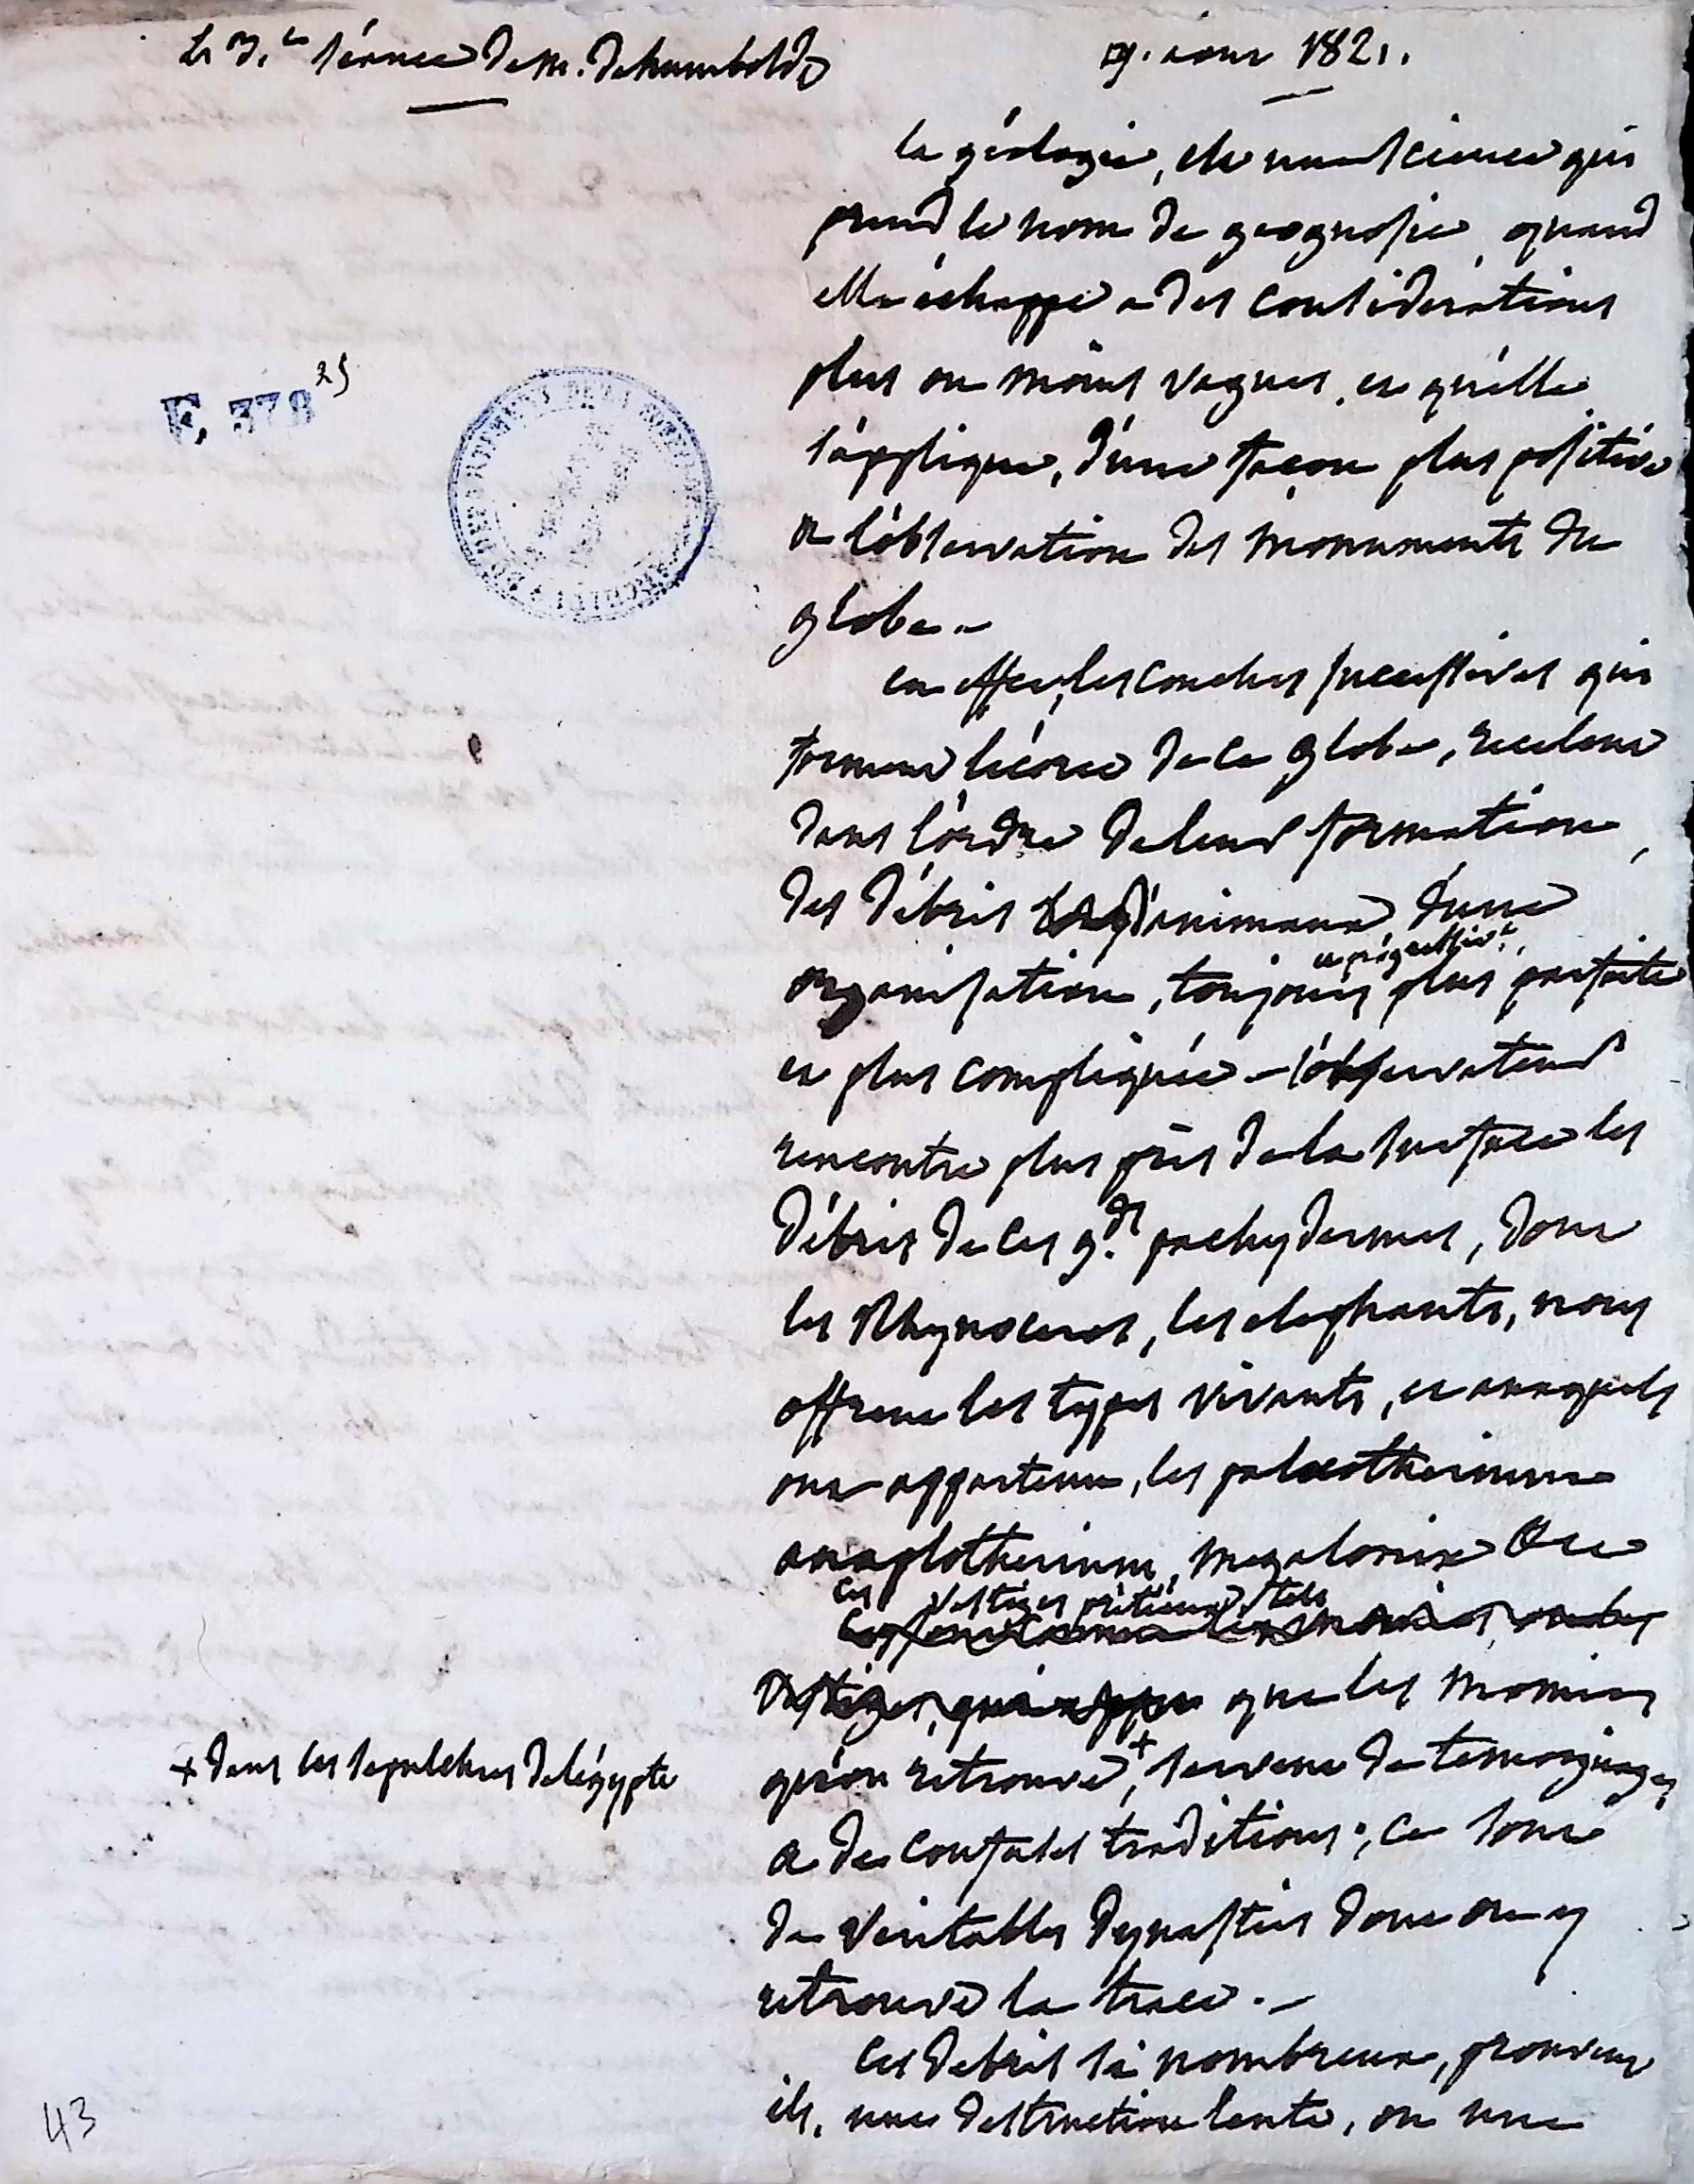 séance de m. de humboldt
aout 1821.
la géologie, est une science qui
prend le nom de geognosie, quand
elle échappe a des considérations
plus ou moins vagues, et qu'elle
s'applique, d'une façon plus positive
a l'observation des monuments du
globe. -
en effet, les couches successives qui
forment l'écorce de ce globe, recelent
dans l'ordre de leur formation,
des débris d'animaux, d'une
et progressivt.
organisation, toujours plus parfaite
et plus compliquée - l'observateur
rencontre plus près de la surface les
débris de ces gds. pachydermes, dont
les Rhynoceros, les elephants, nous
offrent les types vivants, et auxquels
ont appartenu, les palæotherium
anaplotherium, megalonix &c
ces vestiges prétieux, tels
que les momies
+ dans les sepulchres de l'égypte
qu'on retrouve +, servent de temoignages
a de confuses traditions; ce sont
de veritables dynasties dont on y
retrouve la trace. -
ces debris si nombreux, prouvent
ils, une destruction lente, ou une
E, 378 25
43